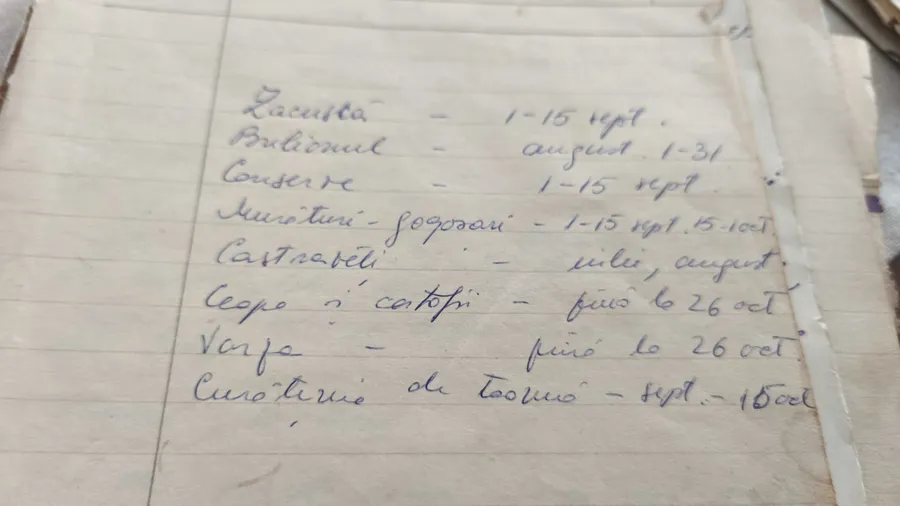 Zacuscă - 1-15 sept.
Bulionul - august 1-31
Conserve - 1-15 sept.
Murături - gogosari - 1-15 sept. 15-1 oct
Castraveti - iulie, august.
Ceapa si cartofii - până la 26 oct
Varza - până la 26 oct.
Curătenia de toamnă - sept. - 15 oct